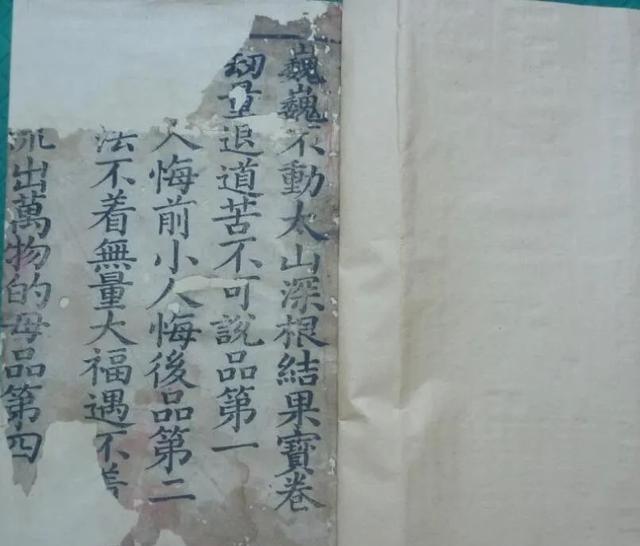 巍巍不動太山深根結果寶卷
劫量退道苦不可說品第一
人悔前小人悔後品第二
法不着無量大福遇不善
流出萬物的母品第四